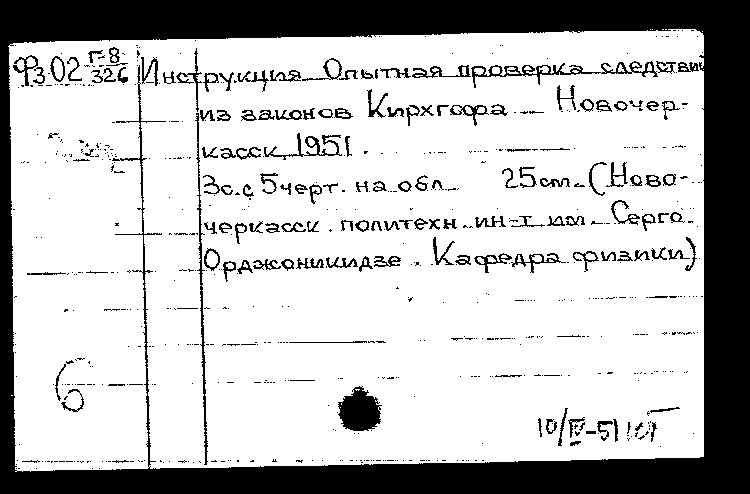 Фз02 Г-8/326 Инструкция Опытная проверка следствий
из законов Кирхгофа - Новочер-
касск, 1951.
3с. с 5черт. на обл 25cm. (Ново-
черкасск. политехн. ин-т им. Серго.
Орджоникидзе. Кафедра физики)
6
10/IV-51